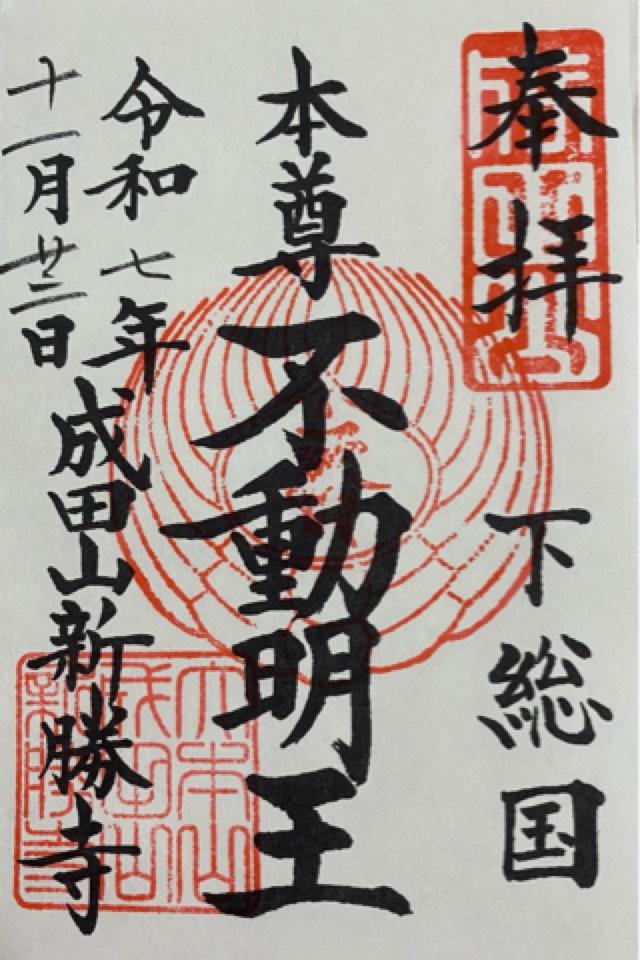 奉拝
下総国
本尊
不動明王
令和七年
十一月廿三日
成田山新勝寺
成田山
大本山成田山新勝寺